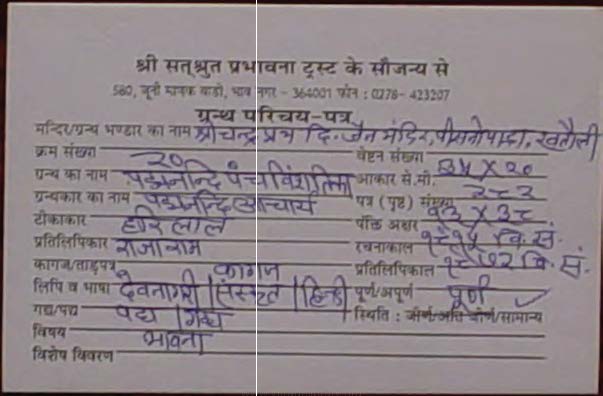 श्री सत्श्रुत प्रभावना ट्रस्ट के सौजन्य से
580, जूनी माणेक वाडी, भाव नगर - 364001 फोन : 0278- 423207
ग्रन्थ परिचय-पत्र
मन्दिर/ग्रन्थ भण्डार का नाम श्री चन्द्रप्रभ दि. जैन मंदिर, पीसनोपाडा, खतौली
क्रम संख्या २० वेष्टन संख्या
ग्रन्थ का नाम पद्मनन्दि पंचविंशतिका आकार से.मी. ३५ X २०
ग्रन्थकार का नाम पद्मनन्दि आचार्य पत्र (पृष्ठ) संख्या २८३
टीकाकार हरिलाल पंक्ति अक्षर १३ X ३८
प्रतिलिपिकार राजाराम रचनाकाल १९१५ वि. सं.
कागज/ताड़पत्र कागज प्रतिलिपिकाल वि. सं.
लिपि व भाषा देवनागरी / संस्कृत / हिन्दी पूर्ण/अपूर्ण पूर्ण
गद्य/पद्य पद्य / गद्य स्थिति : जीर्ण/अति जीर्ण/सामान्य ✓
विषय भावना
विशेष विवरण